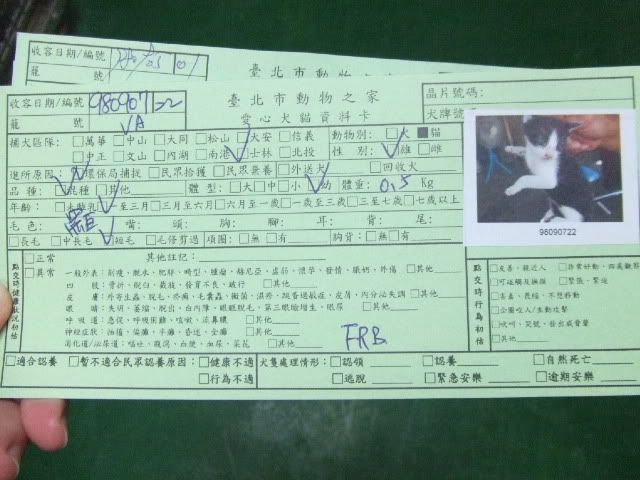 收容日期/編號
籠 號
臺北市動物之家
收容日期/編號 980907 1-22
籠 號 VA
臺北市動物之家
愛心犬貓資料卡
晶片號碼:
犬牌號
捕犬區隊: □萬華 □中山 □大同 □松山 □大安 □信義 動物別: □犬 ■貓
□中正 □文山 □內湖 □南港 □士林 □北投 性別: □雄 □雌
進所原因: □環保局捕捉 □民眾拾獲 □民眾棄養 □外送犬 □回收犬
品種: □混種 □其他 體型: □大 □中 □小 □幼 體重: 0.5 Kg
年齡: □未離乳 □至三月 □三月至六月 □六月至一歲 □一歲至 □三至七歲 □七歲以上
毛色: 嘴: 頭: 胸: 腳: 耳: 背: 尾:
□長毛 □中長毛 □短毛 □毛修剪過 項圈: □無 □有 胸背: □無 □有
98090722
點交時健康狀況初估
□正常 其他註記:
□異常 一般外表: 削瘦、脫水、肥胖、畸型、腫瘤、赫尼亞、虛弱、懷孕、發情、脹奶、外傷 □其他
四 肢: 骨折、脫臼、截肢、發育不良、跛行 □其他
皮 膚: 外寄生蟲、脫毛、疥癬、毛囊蟲、黴菌、濕疹、跳蚤過敏症、皮屑、內分泌失調 □其他
眼 睛: 失明、萎縮、脫出、白內障、眼瞼脫毛、第三眼瞼增生、眼屎 □其他
呼吸道: 急促、呼吸困難、咳嗽、流鼻膿 □其他
神經症狀: 抽搐、偏癱、半癱、昏迷、全癱 □其他
消化道/泌尿道: 嘔吐、腹瀉、血便、血尿、菜花 □其他
FRB
點交時行為初估
□友善、親近人
□可碰觸及撫摸 □緊張、緊迫
□害羞、畏縮、不想移動
□企圖咬人/主動攻擊
□吠叫、哭號、發出威脅聲
□其他
□適合認養 □暫不適合民眾認養原因: □健康不適 犬隻處理情形: □認領 □認養 □自然死亡
□行為不適 □逃脫 □緊急安樂 □逾期安樂